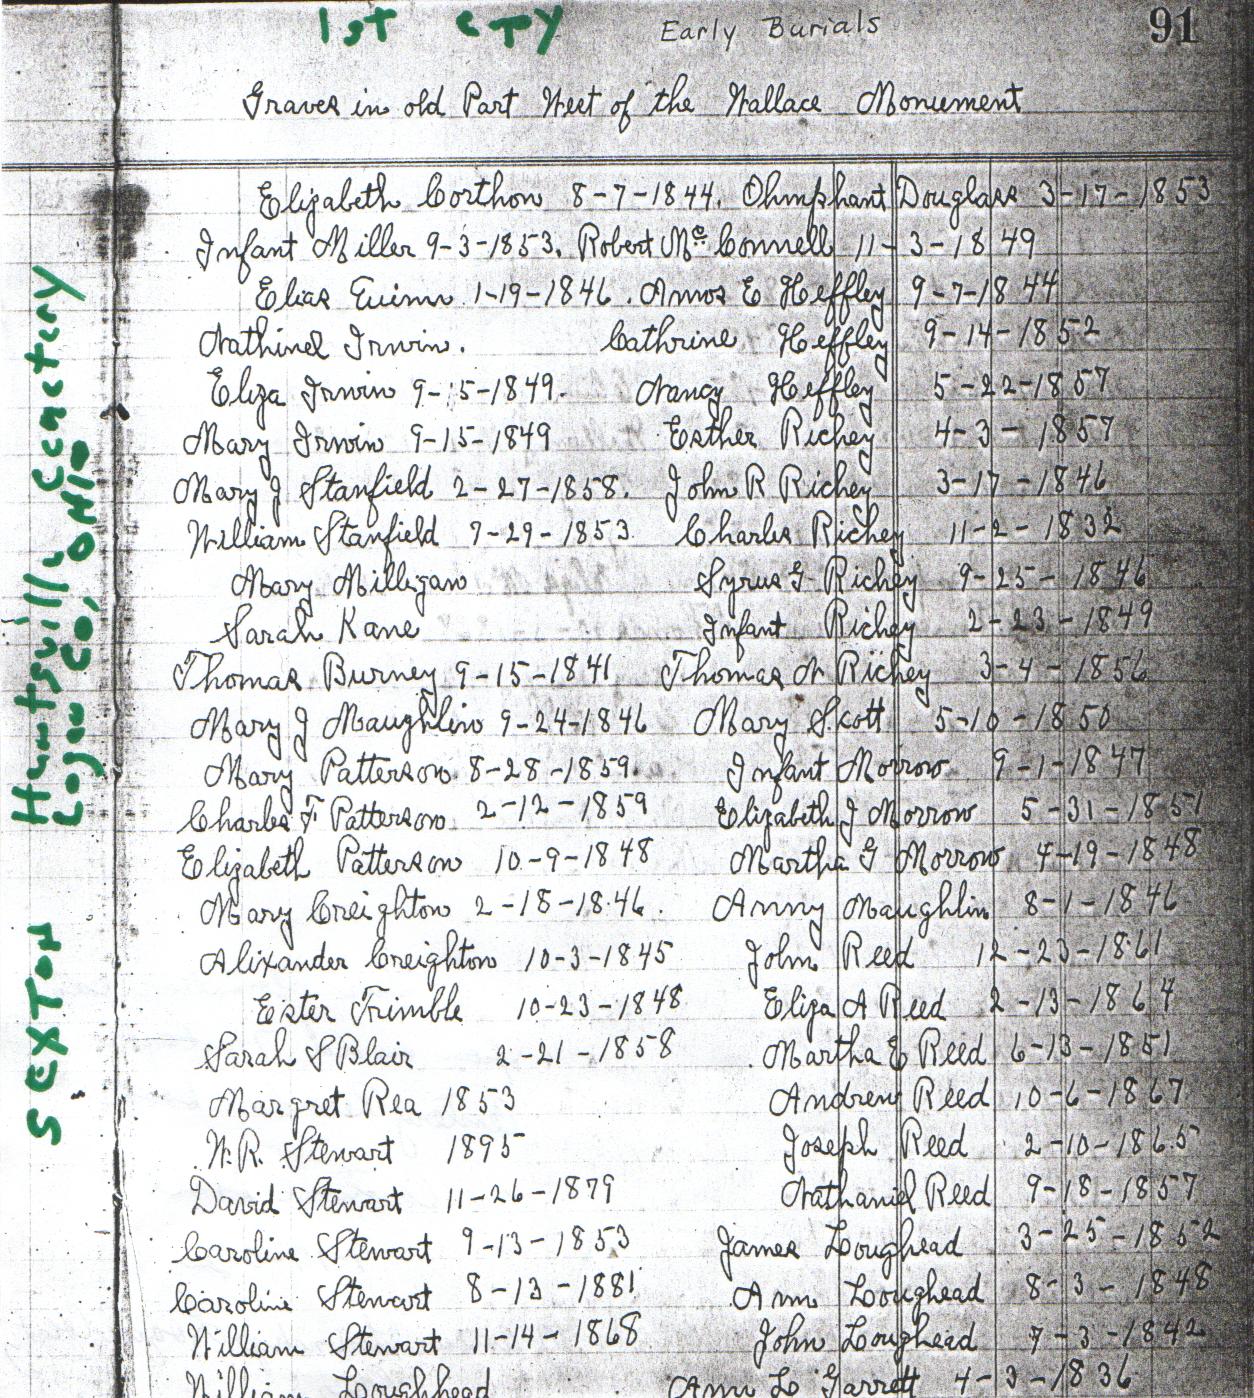 1st copy Early Burials 91
Graves in old Part West of the Wallace Monument
Elizabeth Corthon 8-7-1844. Ohmphant Douglass 3-17-1853
Infant Miller 9-3-1853. Robert Mc Connell 11-3-1849
Elias Guinn 1-19-1846. Amos E Heffley 9-7-1844
Nathinel Irwin. Cathrine Heffley 9-14-1852
Eliza Irwin 9-15-1849. Nancy Heffley 5-22-1857
Mary Irwin 9-15-1849 Esther Richey 4-3-1857
Mary J Stanfield 2-27-1858. John R Richey 3-17-1846
William Stanfield 7-29-1853. Charles Richey 11-2-1832
Mary Milligan Syrus G Richey 9-25-1846
Sarah Kane Infant Richey 2-23-1849
Thomas Burney 9-15-1841 Thomas N Richey 3-4-1856
Mary J Maughlin 9-24-1846 Mary Skott 5-10-1850
Mary Patterson 8-28-1859. Infant Morrow 9-1-1847
Charles F Patterson 2-12-1859 Elizabeth J Morrow 5-31-1851
Elizabeth Patterson 10-9-1848 Martha G Morrow 4-19-1848
Mary Creighton 2-18-1846. Anny Maughlin 8-1-1846
Alixander Creighton 10-3-1845 John Reed 12-23-1861
Ester Trimble 10-23-1848 Eliza A Reed 2-13-1864
Sarah S Blair 2-21-1858 Martha E Reed 6-13-1851
Margret Rea 1853 Andrew Reed 10-6-1867
W.R. Stewart 1895 Joseph Reed 2-10-1865
David Stewart 11-26-1879 Nathaniel Reed 9-18-1857
Caroline Stewart 9-13-1853 James Loughead 3-25-1852
Caroline Stewart 8-13-1881 Ann Loughead 8-3-1848
William Stewart 11-14-1868 John Loughead 7-3-1842
William Loughhead Ann L Garrett 4-3-1836
Huntsville Cemetery
Logan Co, OHIO
SEXTON